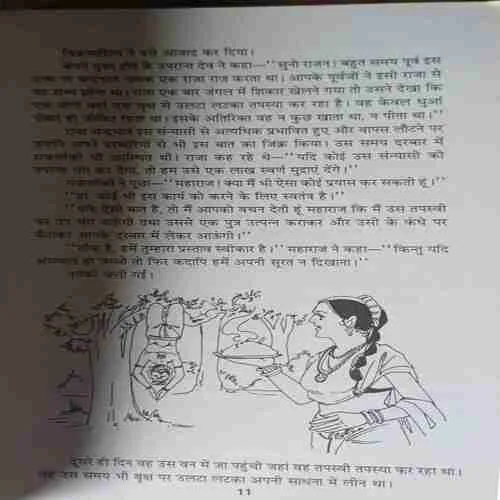 विक्रमादित्य ने उसे आजाद कर दिया।
अपने मुक्त होने के उपरान्त देव ने कहा—''सुनो राजन! बहुत समय पूर्व इस
नामक एक राजा राज करता था। आपके पूर्वजों ने इसी राजा से
यह राज्य राजा एक बार जंगल में शिकार खेलने गया तो उसने देखा कि
एक वृक्ष से उलटा लटका तपस्या कर रहा है। वह केवल धुआँ
पीकर ही जीवित रहता था। इसके अतिरिक्त वह न कुछ खाता था, न पीता था।''
राजा उस संन्यासी से अत्यधिक प्रभावित हुए और वापस लौटने पर
उन्होंने अपने दरबारियों से भी इस बात का जिक्र किया। उस समय दरबार में
राजनर्तकी भी उपस्थित थी। राजा कह रहे थे—''यदि कोई उस संन्यासी को
दे, तो हम उसे एक लाख स्वर्ण मुद्राएं देंगे।''
राजनर्तकी ने पूछा—''महाराज! क्या मैं भी ऐसा कोई प्रयास कर सकती हूं।''
''हां, कोई भी इस कार्य को करने के लिए स्वतंत्र है।''
''यदि ऐसी बात है, तो मैं आपको वचन देती हूं महाराज कि मैं उस तपस्वी
का तप भंग करूंगी तथा उससे एक पुत्र उत्पन्न कराकर और उसी के कंधे पर
बैठाकर आपके दरबार में लेकर आऊंगी।''
''ठीक है, हमें तुम्हारा प्रस्ताव स्वीकार है।'' महाराज ने कहा—''किन्तु यदि
असफल हो जाओ तो फिर कदापि हमें अपनी सूरत न दिखाना।''
नर्तकी चली गई।
दूसरे ही दिन वह उस वन में जा पहुंची जहां वह तपस्वी तपस्या कर रहा था।
वह उस समय भी वृक्ष पर उलटा लटका अपनी साधना में लीन था।
11